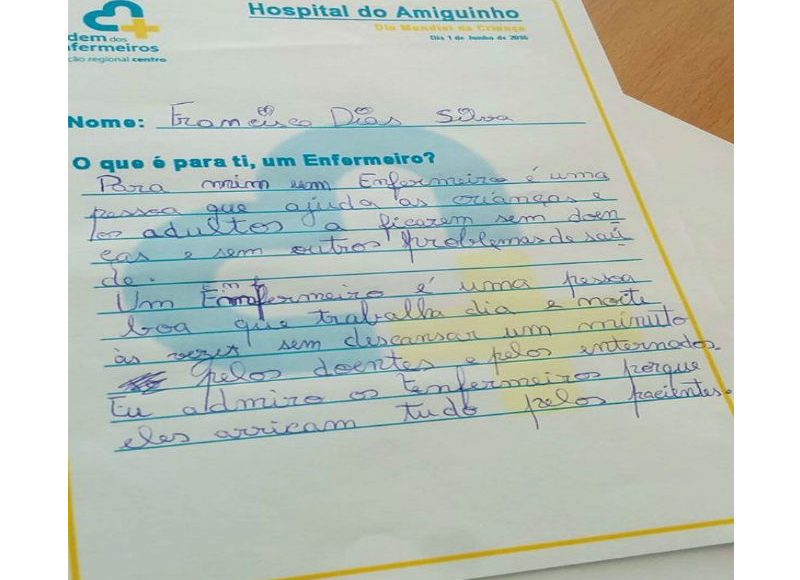 Hospital do Amiguinho
Dia Mundial da Criança
Dia 1 de Junho de 2016
dem dos
fermeiros
ção regional centro
Nome: Francisco Dias Silva
O que é para ti, um Enfermeiro?
Para mim um Enfermeiro é uma
pessoa que ajuda as crianças e
os adultos a ficarem sem doen
ças e sem outros problemas de saú
de.
Um Enfermeiro é uma pessoa
boa que trabalha dia e noite
às vezes sem descansar um minuto
pelos doentes e pelos internados.
Eu admiro os Enfermeiros porque
eles arricam tudo pelos pacientes.